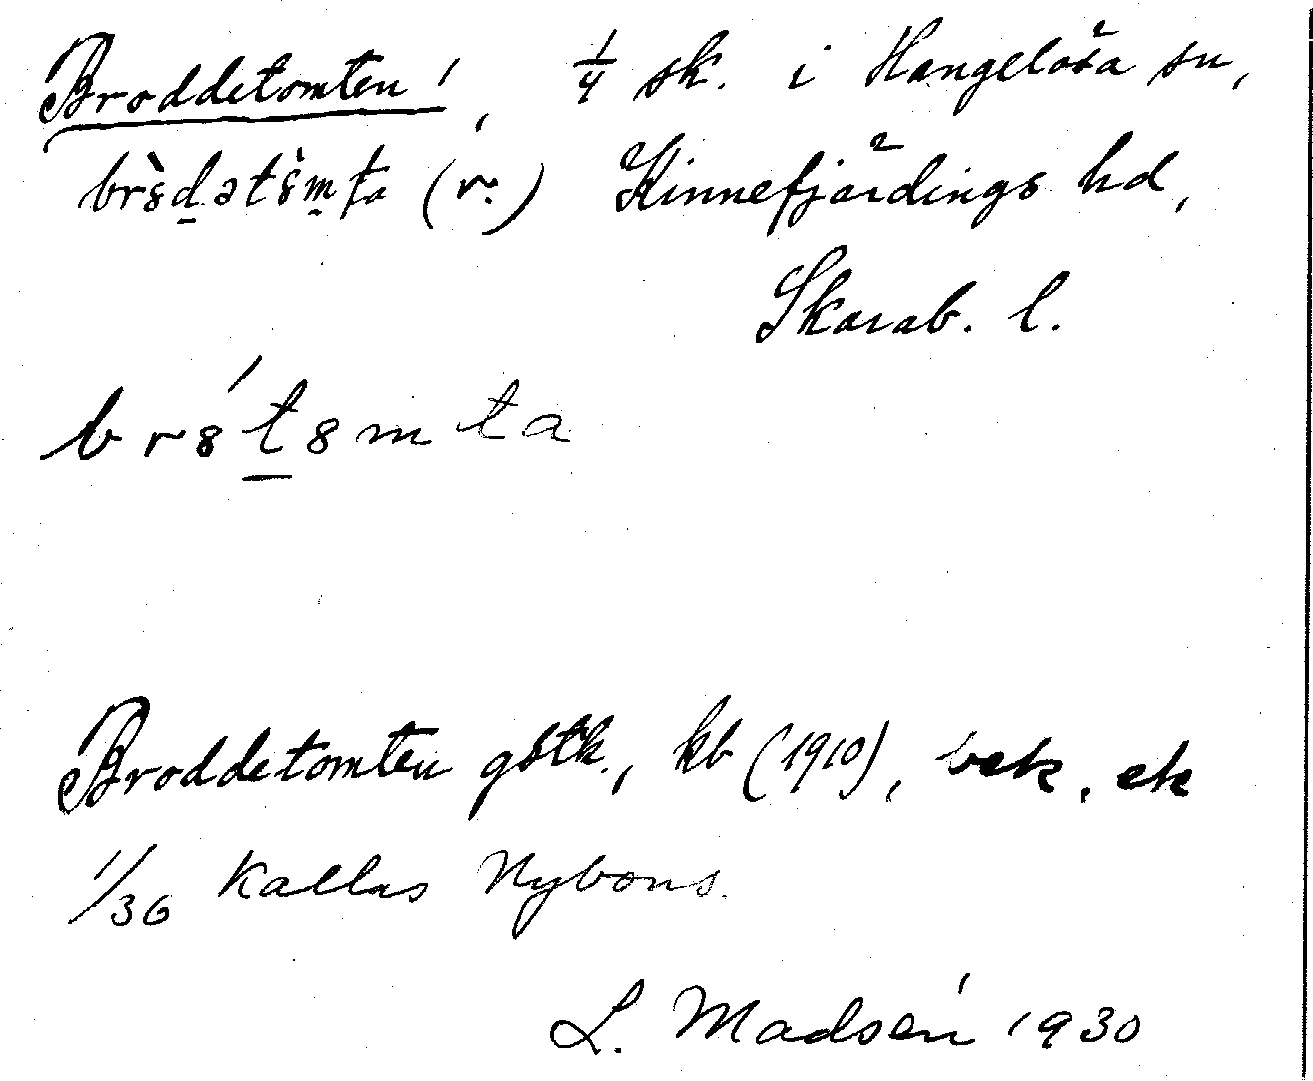 Broddetomten!, 1/4 sk. i Hangelösa sn,
br8̀d̲ət8̀m̲ta (r.) Kinnefjärdings hd,
Skarab. l.
br8́t̲8mta
Broddetomten götk., kb (1910), bek. ek
1/36 kallas Nybons.
L. Madsén 1930